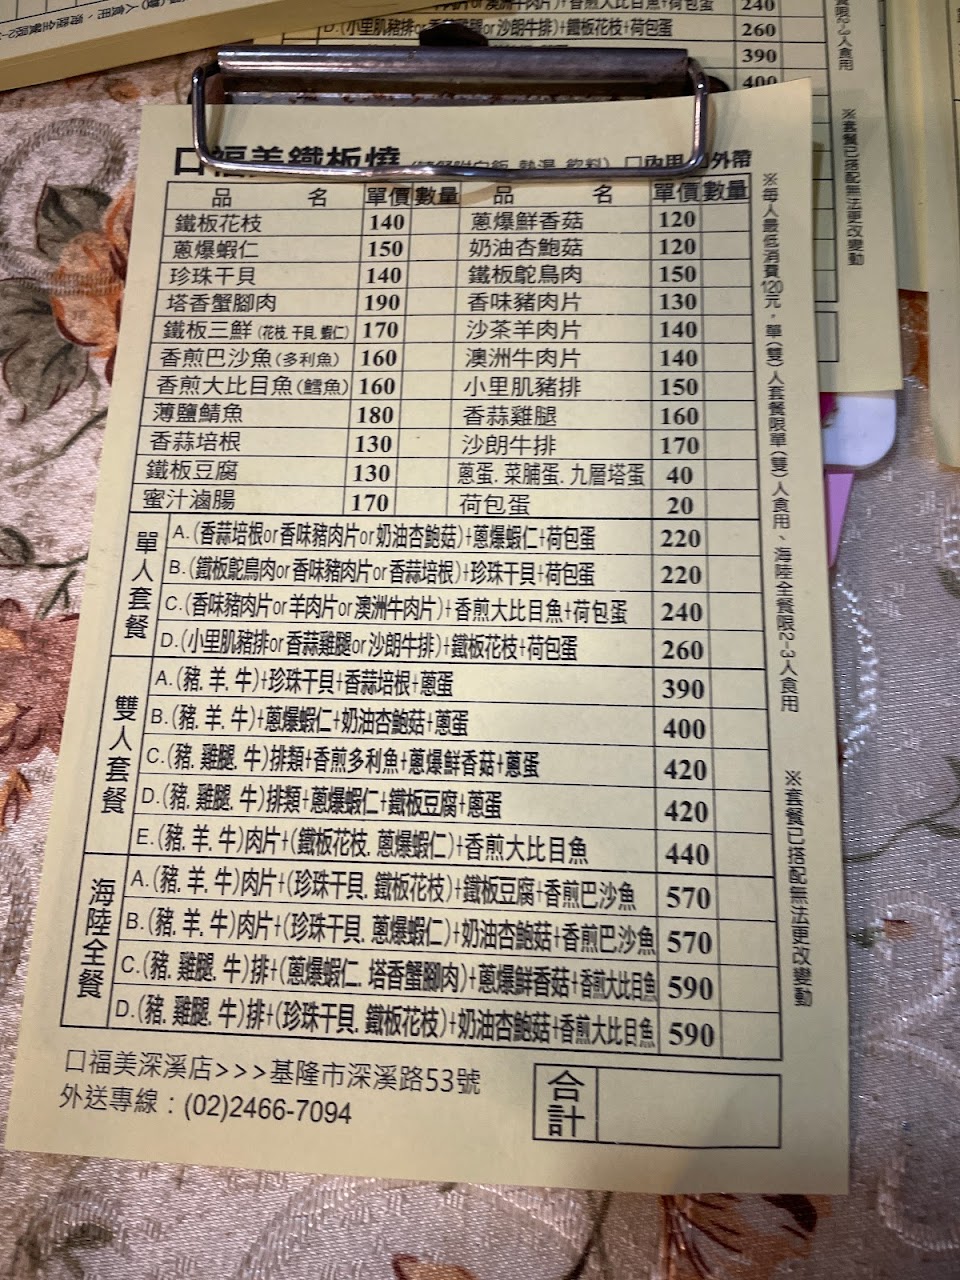 口福美鐵板燒
口內用 口外帶
品名 單價 數量 品名 單價 數量
鐵板花枝 140 蔥爆鮮香菇 120
蔥爆蝦仁 150 奶油杏鮑菇 120
珍珠干貝 140 鐵板鴕鳥肉 150
塔香蟹腳肉 190 香味豬肉片 130
鐵板三鮮(花枝.干貝.蝦仁) 170 沙茶羊肉片 140
香煎巴沙魚(多利魚) 160 澳洲牛肉片 140
香煎大比目魚(鱈魚) 160 小里肌豬排 150
薄鹽鯖魚 180 香蒜雞腿 160
香蒜培根 130 沙朗牛排 170
鐵板豆腐 130 蔥蛋.菜脯蛋.九層塔蛋 40
蜜汁滷腸 170 荷包蛋 20
單人套餐
A.(香蒜培根or香味豬肉片or奶油杏鮑菇)+蔥爆蝦仁+荷包蛋 220
B.(鐵板鴕鳥肉or香味豬肉片or香蒜培根)+珍珠干貝+荷包蛋 220
C.(香味豬肉片or羊肉片or澳洲牛肉片)+香煎大比目魚+荷包蛋 240
D.(小里肌豬排or香蒜雞腿or沙朗牛排)+鐵板花枝+荷包蛋 260
雙人套餐
A.(豬.羊.牛)+珍珠干貝+香蒜培根+蔥蛋 390
B.(豬.羊.牛)+蔥爆蝦仁+奶油杏鮑菇+蔥蛋 400
C.(豬.雞腿.牛)排類+香煎多利魚+蔥爆鮮香菇+蔥蛋 420
D.(豬.雞腿.牛)排類+蔥爆蝦仁+鐵板豆腐+蔥蛋 420
E.(豬.羊.牛)肉片+(鐵板花枝.蔥爆蝦仁)+香煎大比目魚 440
海陸全餐
A.(豬.羊.牛)肉片+(珍珠干貝.鐵板花枝)+鐵板豆腐+香煎巴沙魚 570
B.(豬.羊.牛)肉片+(珍珠干貝.蔥爆蝦仁)+奶油杏鮑菇+香煎巴沙魚 570
C.(豬.雞腿.牛)排+(蔥爆蝦仁.塔香蟹腳肉)+蔥爆鮮香菇+香煎大比目魚 590
D.(豬.雞腿.牛)排+(珍珠干貝.鐵板花枝)+奶油杏鮑菇+香煎大比目魚 590
口福美深溪店>>>基隆市深溪路53號
外送專線：(02)2466-7094
合計
※每人最低消費120元，單(雙)人套餐限單(雙)人食用、海陸全餐限2-3人食用
※套餐已搭配無法更改變動
240
D.(小里肌豬排or香蒜雞腿or沙朗牛排)+鐵板花枝+荷包蛋 260
390
400
※套餐已搭配無法更改變動